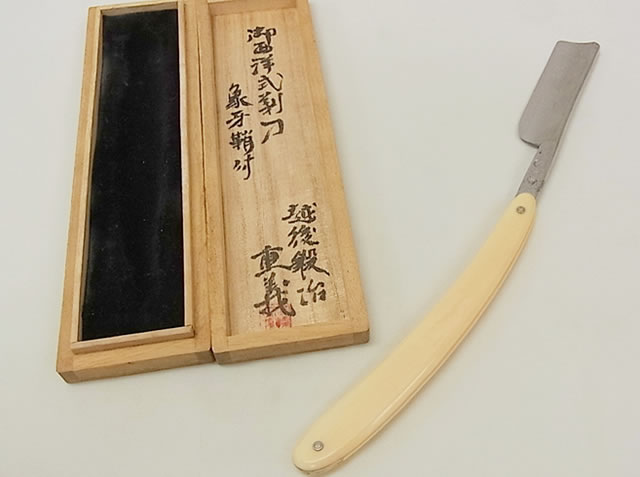 御西洋式剃刀
象牙鞘付
越後鍛冶
重義